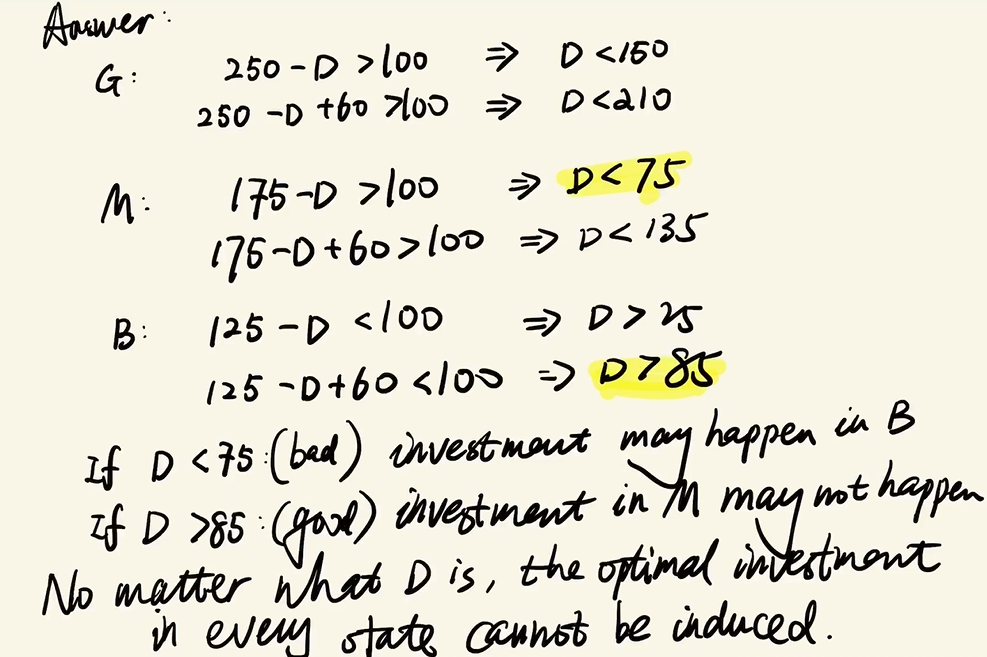 Answer:
G: 250 - D > 100 ⇒ D < 150
250 - D + 60 > 100 ⇒ D < 210
M: 175 - D > 100 ⇒ D < 75
175 - D + 60 > 100 ⇒ D < 135
B: 125 - D < 100 ⇒ D > 25
125 - D + 60 < 100 ⇒ D > 85
If D < 75 : (bad) investment may happen in B
If D > 85 : (good) investment in M may not happen
No matter what D is, the optimal investment
in every state cannot be induced.